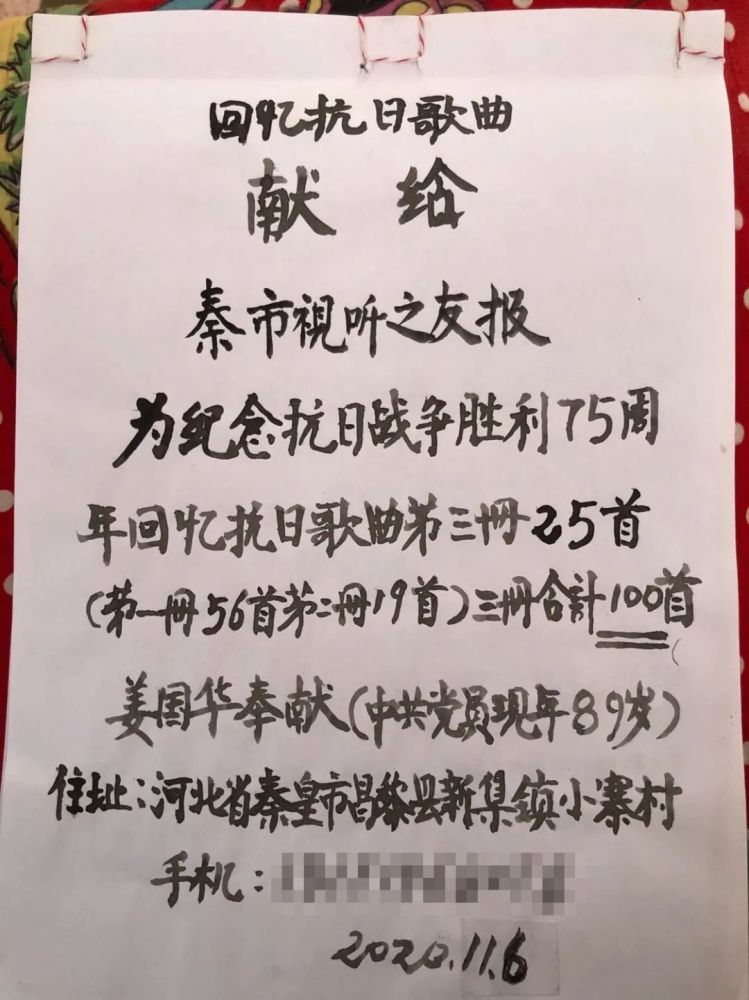 回忆抗日歌曲
献给
秦市視听之友报
为纪念抗日战争胜利75周
年回忆抗日歌曲第三册25首
(第一册56首第二册19首)三册合計100首
姜国华奉献(中共党员现年89岁)
住址:河北省秦皇市昌黎县新集镇小寨村
手机:
2020.11.6